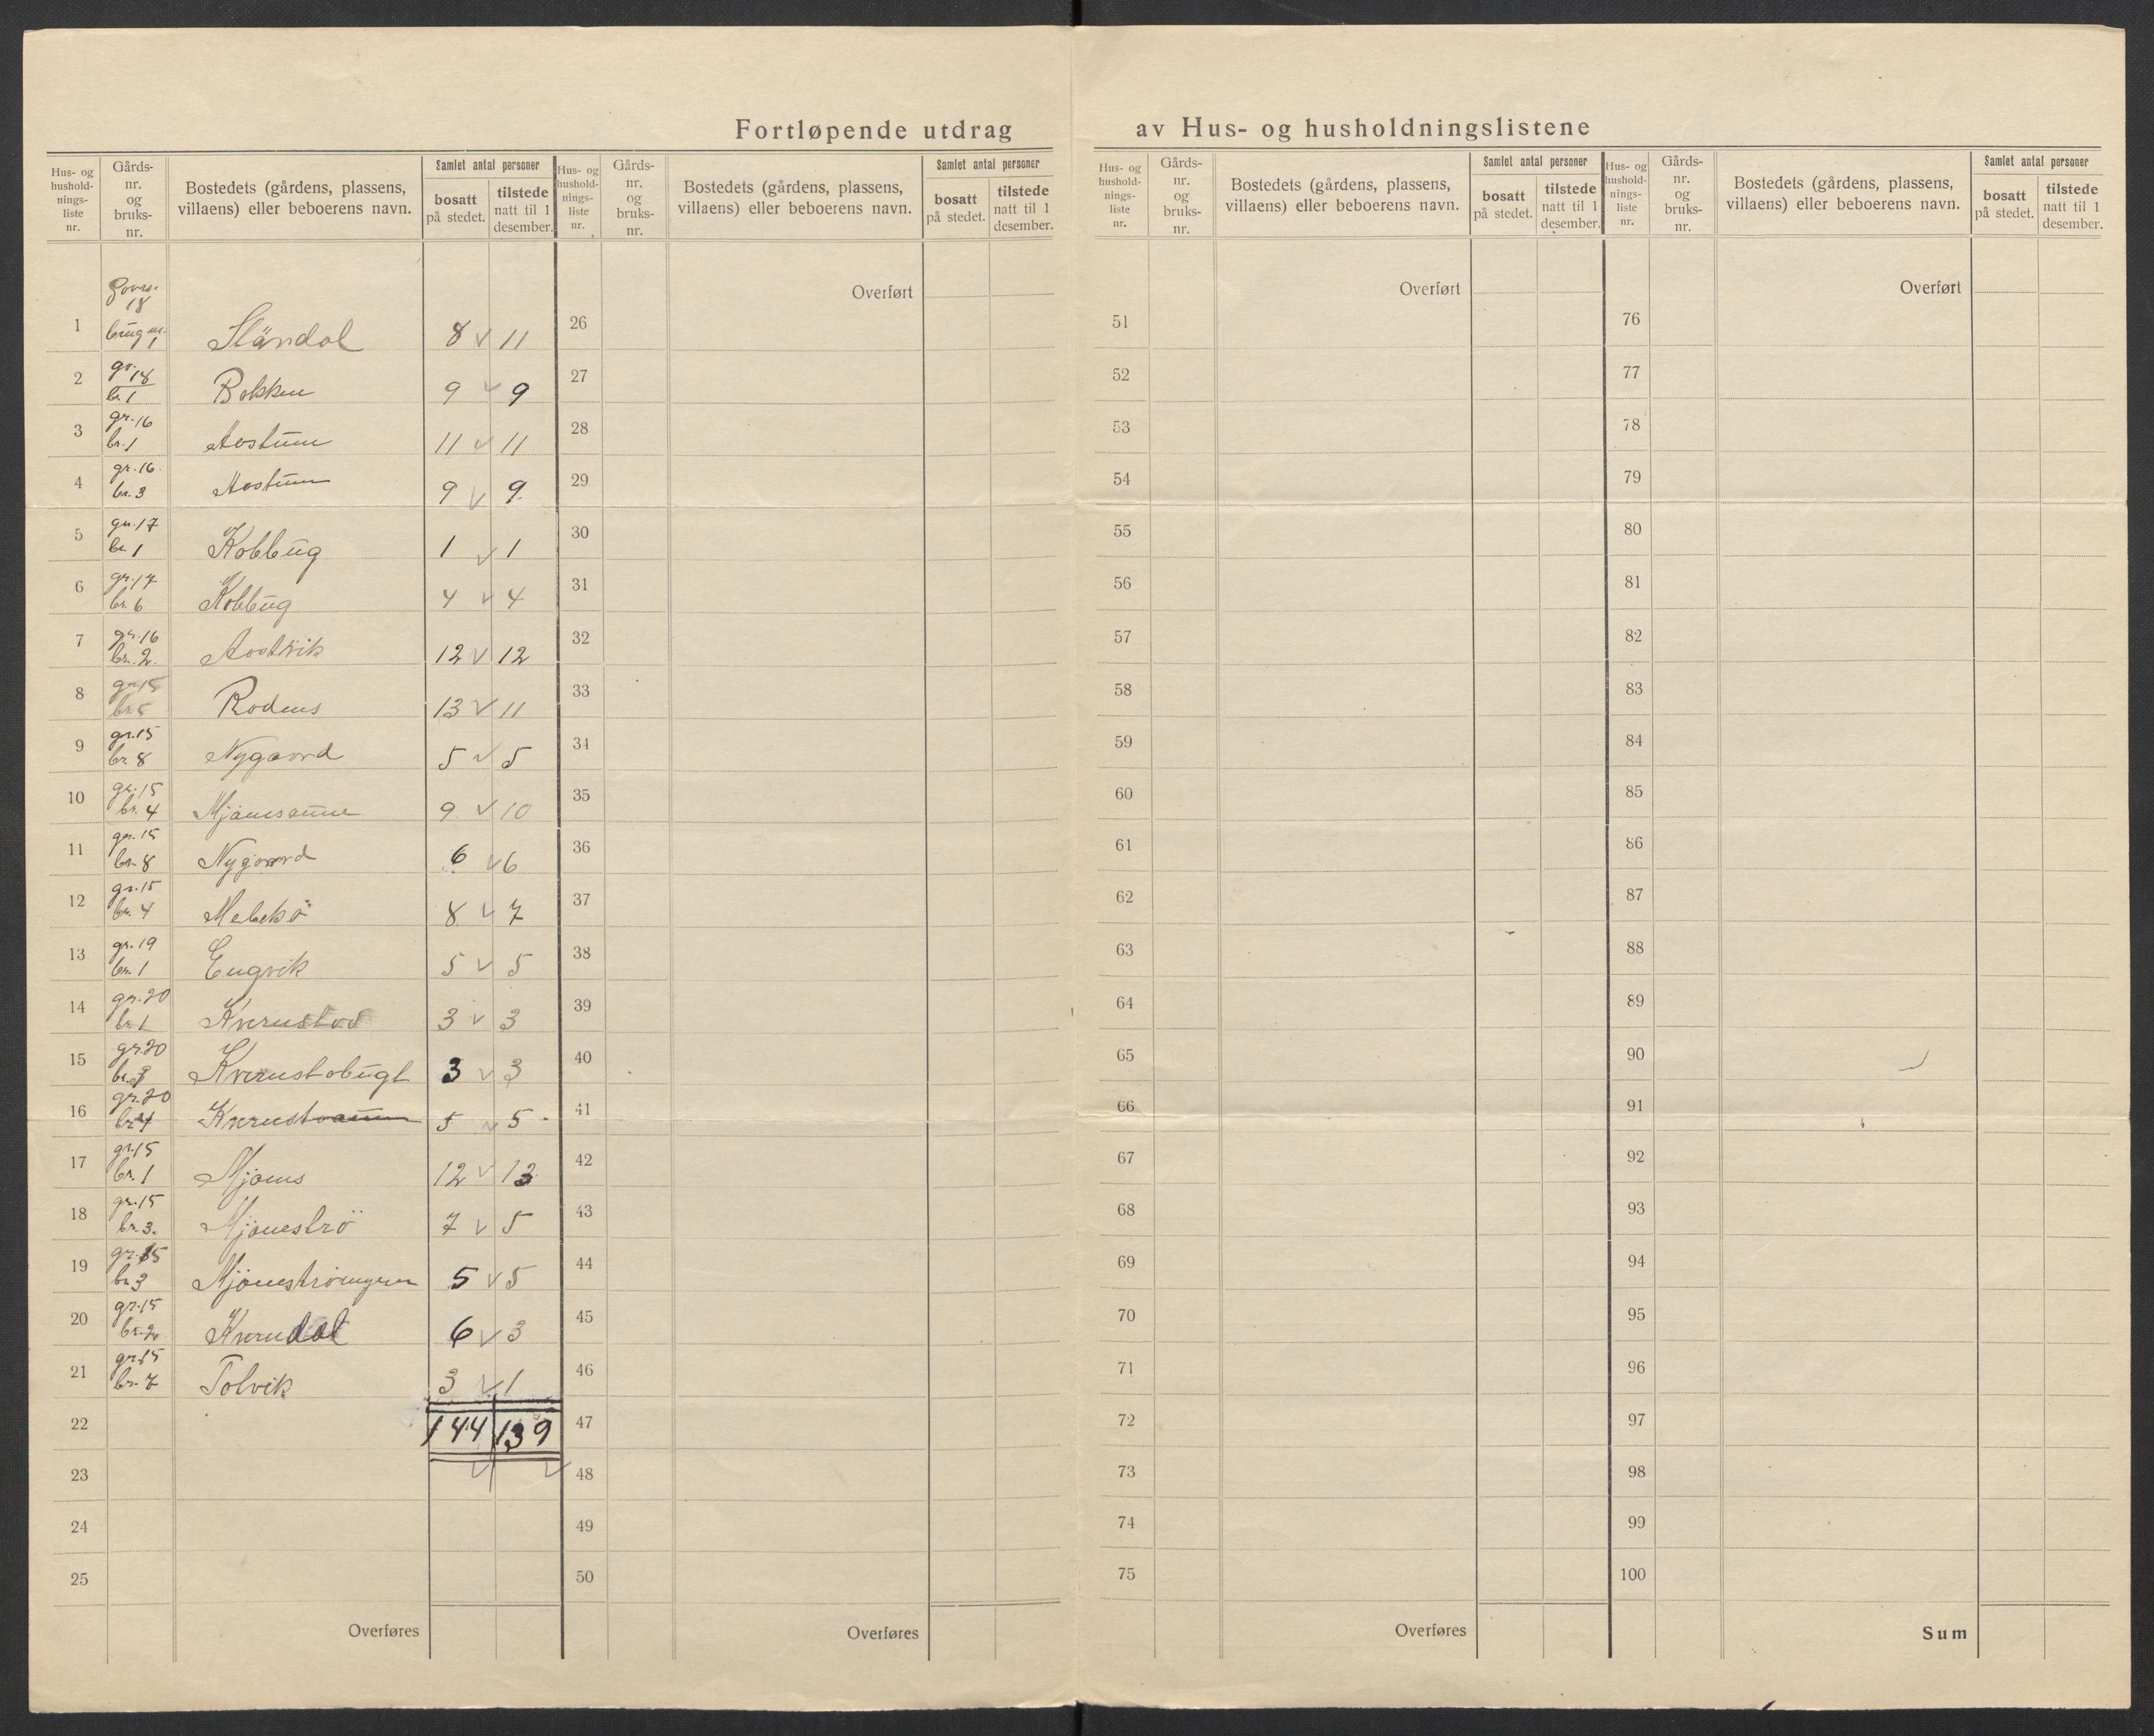 Fortløpende utdrag av Hus- og husholdningslistene
Hus- og hushold-nings-liste nr. | Gårds-nr. og bruks-nr. | Bostedets (gårdens, plassens, villaens) eller beboerens navn. | Samlet antal personer | bosatt på stedet. | tilstede natt til 1 desember.
Hus- og hushold-nings-liste nr. | Gårds-nr. og bruks-nr. | Bostedets (gårdens, plassens, villaens) eller beboerens navn. | Samlet antal personer | bosatt på stedet. | tilstede natt til 1 desember.
Hus- og hushold-nings-liste nr. | Gårds-nr. og bruks-nr. | Bostedets (gårdens, plassens, villaens) eller beboerens navn. | Samlet antal personer | bosatt på stedet. | tilstede natt til 1 desember.
Hus- og hushold-nings-liste nr. | Gårds-nr. og bruks-nr. | Bostedets (gårdens, plassens, villaens) eller beboerens navn. | Samlet antal personer | bosatt på stedet. | tilstede natt til 1 desember.
1 18 brug nr. 1 8 v 11
2 gr. 18 br. 1 Bokken 9 v 9
3 gr. 16 br. 1 Aostum 11 v 11
4 gr. 16 br. 3 Aostum 9 v 9
5 gr. 17 br. 1 Kobbug 1 v 1
6 gr. 17 br. 6 Kobbug 4 v 4
7 gr. 16 br. 2 Aostvik 12 v 12
8 gr. 15 br. 5 Rodens 13 v 11
9 gr. 15 br. 8 Nygaard 5 v 5
10 gr. 15 br. 4 Mjønesaune 9 v 10
11 gr. 15 br. 8 Nygaard 6 v 6
12 gr. 15 br. 4 8 v 7
13 gr. 19 br. 1 Engvik 5 v 5
14 gr. 20 br. 1 Kvernstad 3 v 3
15 gr. 20 Kvernstabugt 3 v 3
16 gr. 20 br. 4 5 v 5
17 gr. 15 br. 1 Mjønes 12 v 13
18 gr. 15 br. 3. Mjøneströ 7 v 5
19 gr. 15 br. 3 5 v 5
20 gr. 15 br. 2 Kverndal 6 v 3
21 gr. 15 br. 7 Tolvik 3 v 1
22 144 139
23 v v
24
25
Overføres
Overført
26
27
28
29
30
31
32
33
34
35
36
37
38
39
40
41
42
43
44
45
46
47
48
49
50
Overføres
Overført
51
52
53
54
55
56
57
58
59
60
61
62
63
64
65
66
67
68
69
70
71
72
73
74
75
Overføres
Overført
76
77
78
79
80
81
82
83
84
85
86
87
88
89
90
91
92
93
94
95
96
97
98
99
100
Sum